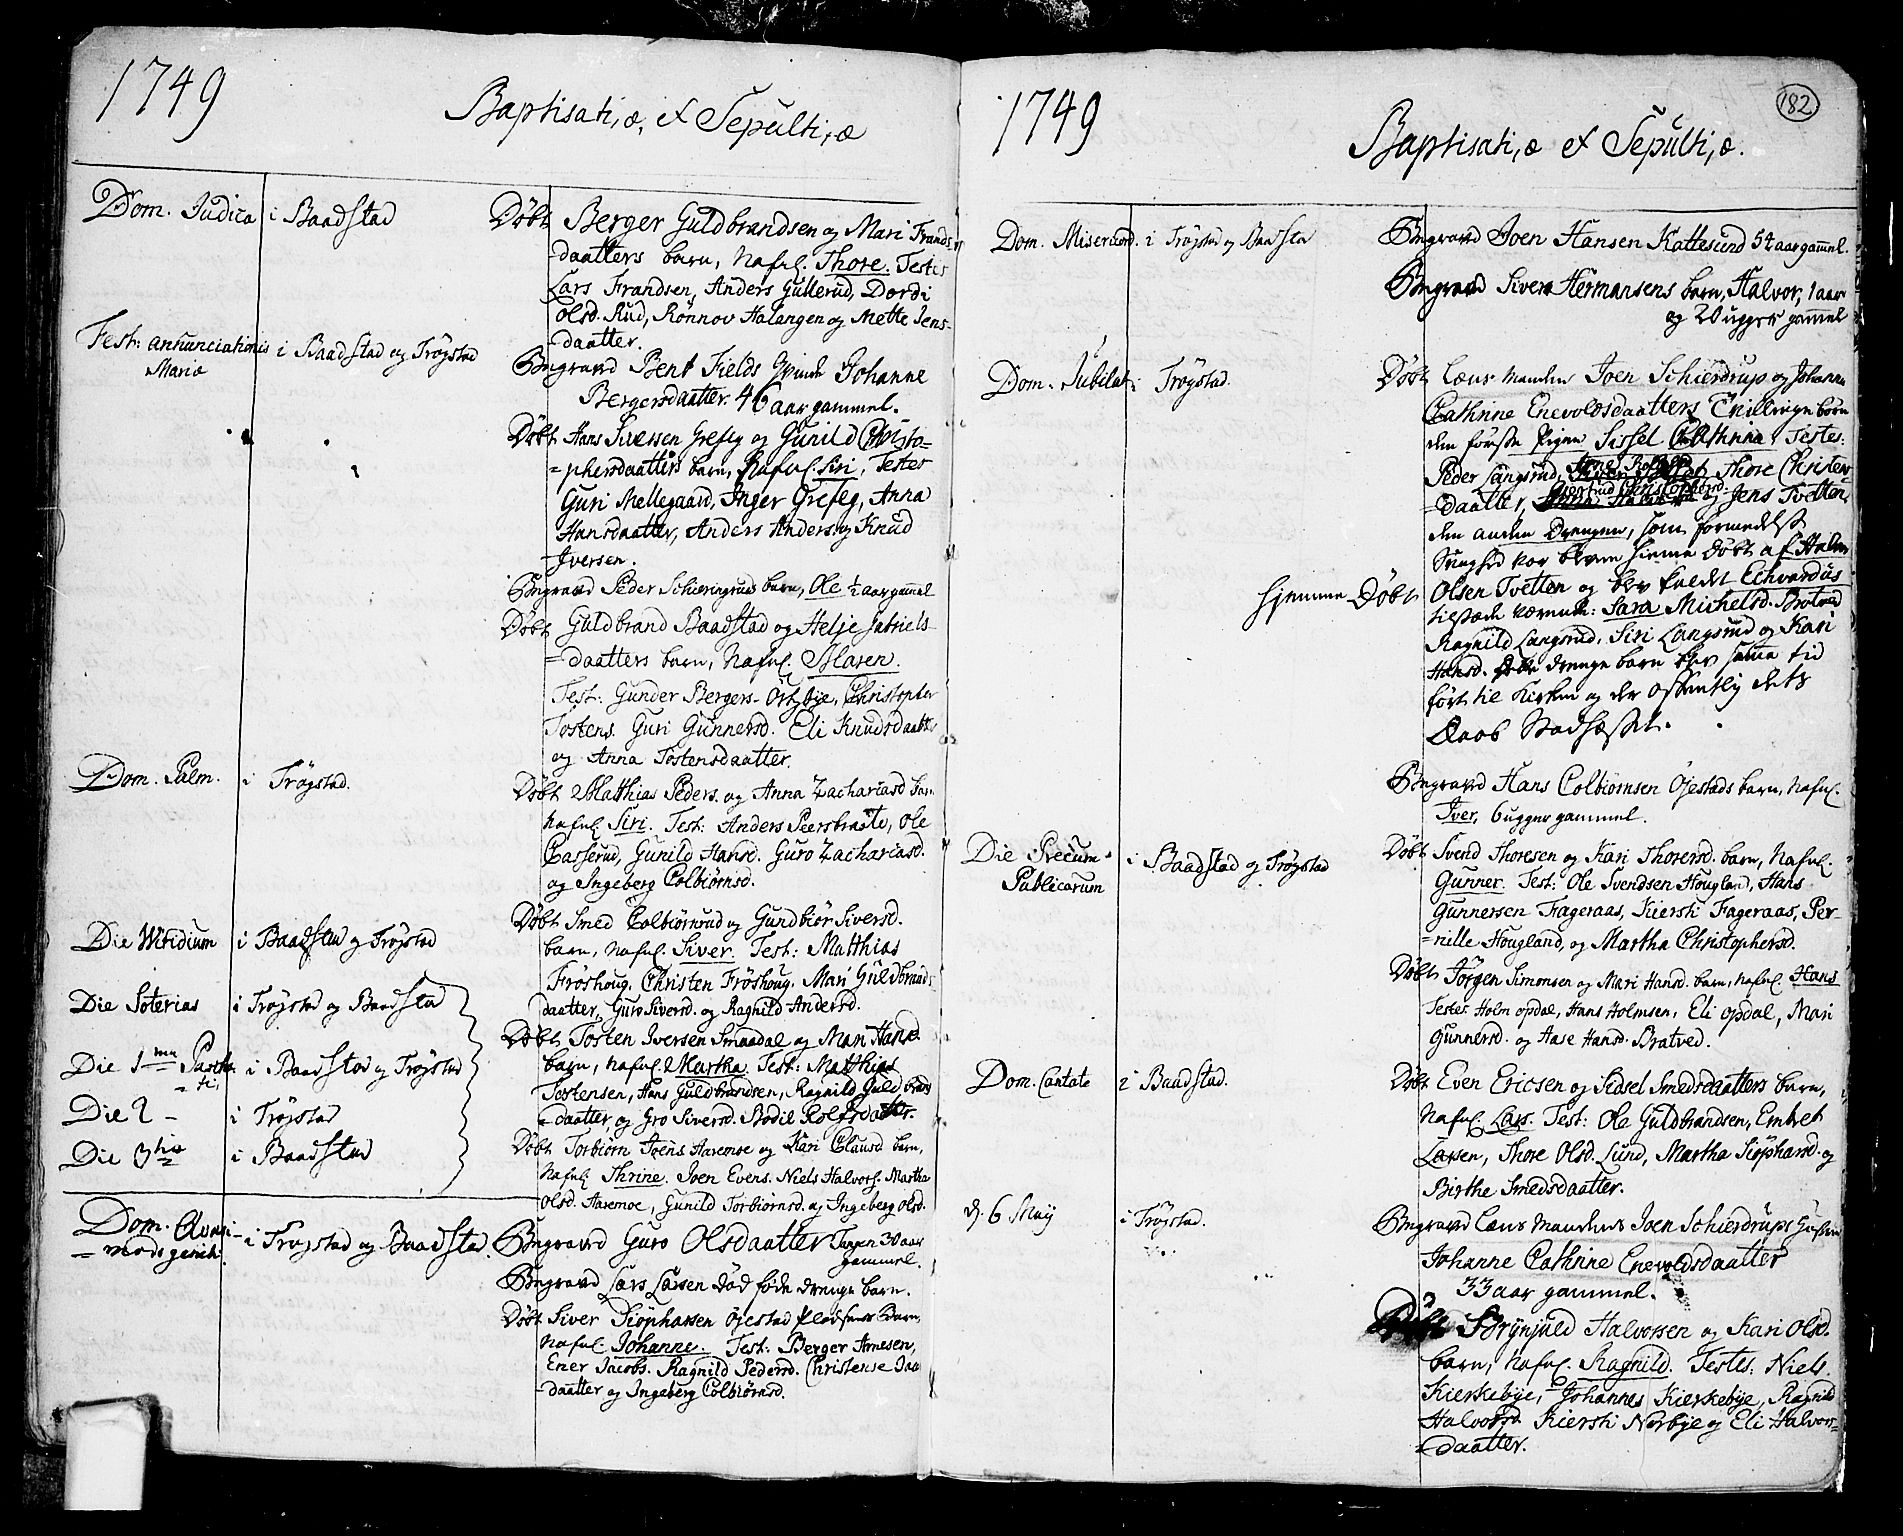 1749
Baptisati,æ, et Sepulti,æ
Dom. Judica i Baadstad
Døbt Berger Guldbrandsen og Mari Frands
daatters barn, Nafnl. Thore. Testes
Lars Frandsen, Anders Gullerud, Dordi
Olsd. Rud, Rønnov Halangen og Mette Jens-
daatter.
Fest: annunciationis i Baadstad og Trøgstad
Mariæ
Begravd Bent Fields Qvinde Johanne
Bergersdaatter. 46 aar gammel.
Døbt Hans Siversen Grefeg og Gunild Christo-
=phersdaatters barn, Nafnl. Siri, Testes
Guri Mellegaard, Inger Grefeg, Anna
Hansdaatter, Anders Anders. og Knud
Iversen.
Begravd Peder Schieringruds barn, Ole ½ aar gammel
Døbt Guldbrand Baadstad og Helje Gabriels-
=daatters barn, Nafnl. Maren.
Test: Gunder Bergers. Ostbye, Christopher
Tostens. Guri Gunnersd. Eli Knudsdaatter
og Anna Tostensdaatter.
Dom. Palm. i Trøgstad.
Døbt Matthias Peders. og Anna Zachariasd barn
Nafnl Siri. Test: Anders Peersbraate, Ole
Casserud, Gunild Hansd. Guro Zachariasd.
og Ingeberg Colbiørnsd.
Die Viridium i Baadstad og Trøgstad
Døbt Smed Colbiørnrud og Gundbiør Siversd.
barn, Nafnl. Siver. Test: Matthias
Frøshoug, Christen Frøshoug, Mari Guldbrands
daatter, Guro Siversd. og Ragnild Andersd.
Die Soterias i Trøgstad og Baadstad
Døbt Tosten Iversen Smaadal og Mari Hansd.
barn, Nafnl. Martha. Test: Matthias
Tostensen, Hans Guldbrandsen, Ragnild Guldbrands
daatter, og Gro Siversd. Bodil Rolfsdaatter.
Die 1ma Pascha
=tis, i Baadstad og Trøgstad
Die 2 - i Trøgstad
Die 3tia i Baadstad
Døbt Torbiørn Joens Haremoe og Kari Clausd barn,
Nafnl Thrine. Joen Evens. Niels Halvors. Martha
Olsd. Haremoe, Gunild Torbiørnsd. og Ingeberg Olsd.
Dom. Qvasi-
=modogenit. i Trøgstad og Baadstad.
Begravd Guro Olsdaatter 30 aar
gammel.
Begravd Lars Larsen død føde drenge barn.
Døbt Siver Siøphersen Øiestad Pladsens Barn,
Nafnl Johanne. Test: Berger Arnesen,
Ener Jacobs. Ragnild Pedersd. Christense
daatter og Ingeberg Colbiørnsd.
182
1749
Baptisati,æ et Sepulti,æ.
Dom. Misericord. i Trøgstad og Baadsta
Begravd Joen Hansen Kattesund 54 aar gammel.
Begravd Siver Hermansens barn, Halvor, 1 aar
og 20 uger gammel
Dom. Jubilate i Trøgstad.
Døbt Lens manden Joen Schierdrup og Johanne
Cathrine Enevoldsdaatters Tvillinge børn
den første Pigen Sissel Cathrina. Testes:
Peder Langsrud, Thore Christens-
=daatter, Giertrud Christophersd. og Jens Tvetten,
den anden Drengen, som formedelst
Svaghed var bleven hiemme døbt af Halvor
hjemme Døbt Olsen Tvetten og blev kaldet Echvardus
tilstæde værende: Sara Michelsd. Bratved
Ragnild Langsrud, Siri Langsrud og Kari
Hansd. drenge barn blev samme tid
ført til Kirken og der offentlig dets
Daab Stadfæstet.
Begravd Hans Colbiørnsen Øjestads barn, Nafnl.
Iver, 6 uger gammel.
Die Precum
Publicarum i Baadstad og Trøgstad
Døbt Svend Thoresen og Kari Thoresd. barn, Nafnl.
Gunner. Test: Ole Svendsen Hougland, Hans
Gunnersen Fageraas, Kiersti Fageraas, Per-
=nille Hougland, og Martha Christophersd.
Døbt Jørgen Simonsen og Mari Hansd. barn, Nafnl. Hans
Testes. Holm Opdal, Hans Holmsen, Eli Opdal, Mari
Gunnersd. og Aase Hansd. Bratved.
Dom. Cantate i Baadstad.
Døbt Even Ericsen og Sidsel Smedsdaatters barn,
Nafnl. Lars. Test: Ole Guldbrandsen, Embret
Larsen, Thore Olsd. Lund, Martha Siøphersd. og
Birthe Smedsdaatter.
d. 6 Maij i Trøgstad.
Begravd Lens Mandens Joen Schierdrups Hustru
Johanne Cathrine Enevoldsdaatter
33 aar gammel.
Døbt Brynjuld Halvorsen og Kari Olsd.
barn, Nafnl. Ragnild. Testes: Niels
Kierkebye, Johannes Kierkebye, Ragnild
Halvorsd. Kiersti Norbye og Eli Halvor-
=daatter.